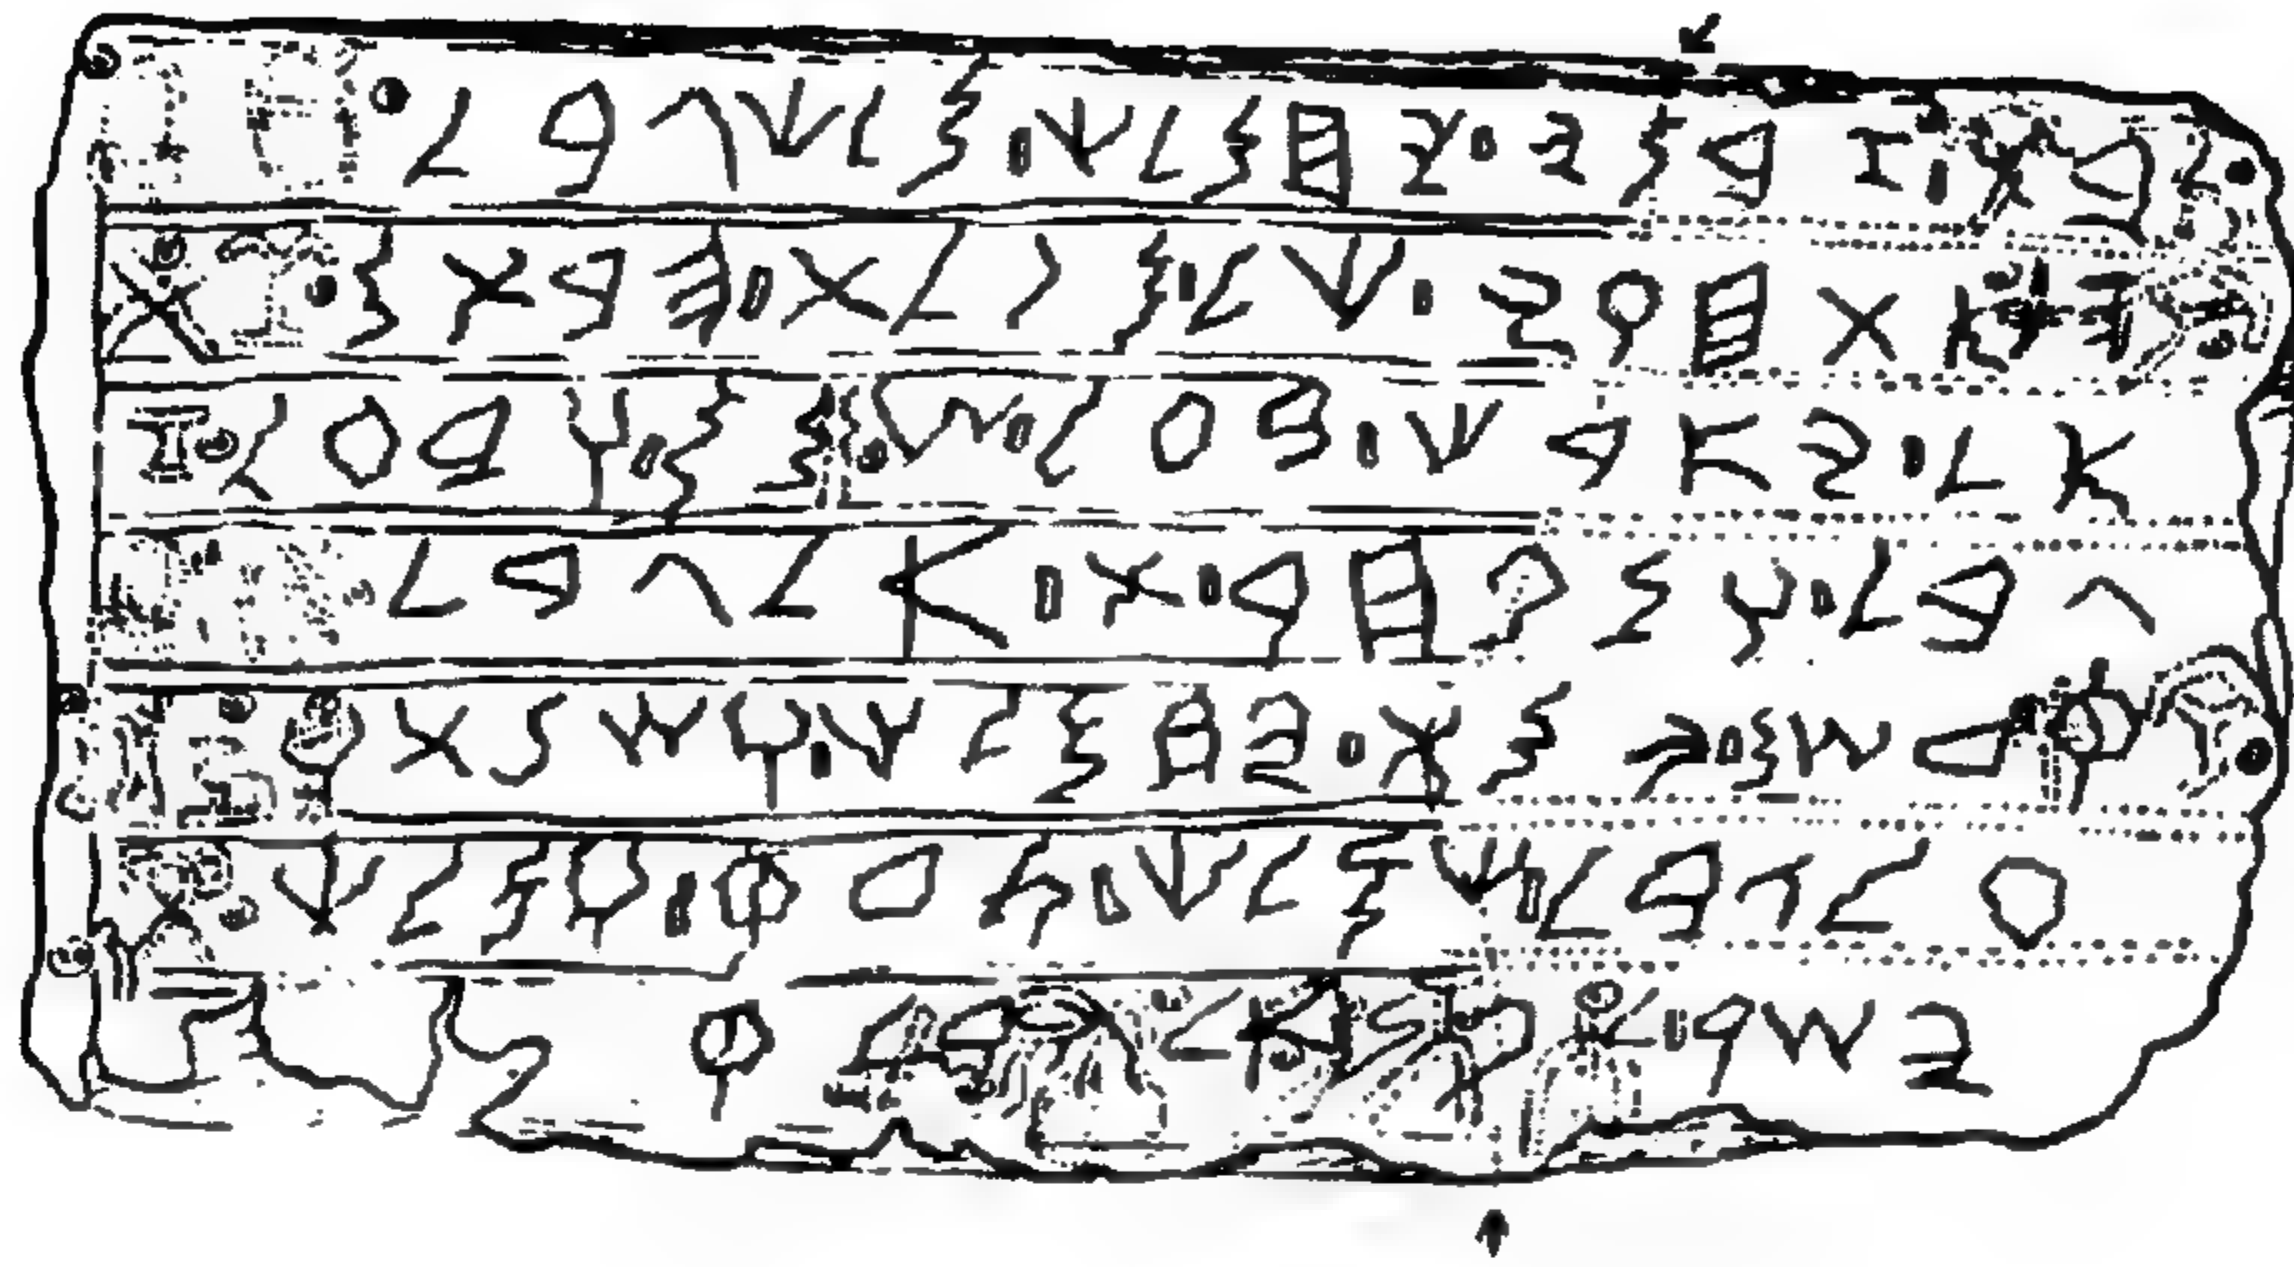 𐤁𐤕·𐤆𐤁𐤍𐤉·𐤉𐤇𐤌𐤋𐤊·𐤌𐤋𐤊𐤂𐤁𐤋
𐤄𐤀𐤕𐤇𐤅𐤉·𐤊𐤋·𐤌𐤐𐤋𐤕·𐤄𐤁𐤕𐤌
𐤀𐤋·𐤉𐤀𐤓𐤊·𐤁𐤏𐤋·𐤔𐤌𐤌·𐤅𐤁𐤏𐤋
𐤂𐤁𐤋·𐤅𐤌𐤐𐤇𐤓·𐤕·𐤀𐤋𐤂𐤁𐤋
𐤒𐤃𐤔𐤌·𐤉𐤌𐤕·𐤉𐤇𐤌𐤋𐤊·𐤅𐤔𐤍𐤕𐤅
𐤏𐤋𐤂𐤁𐤋·𐤊𐤌𐤋𐤊·𐤑𐤃𐤒·𐤅𐤌𐤋𐤊
𐤉𐤔𐤓·𐤋𐤐𐤍·𐤀𐤋𐤂𐤁𐤋·𐤒